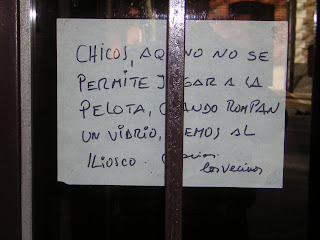 CHICOS, NO SE
PERMITE JUGAR A LA
PELOTA, CUANDO ROMPAN
UN VIDRIO, AL
KIOSCO. Gracias
los vecinos